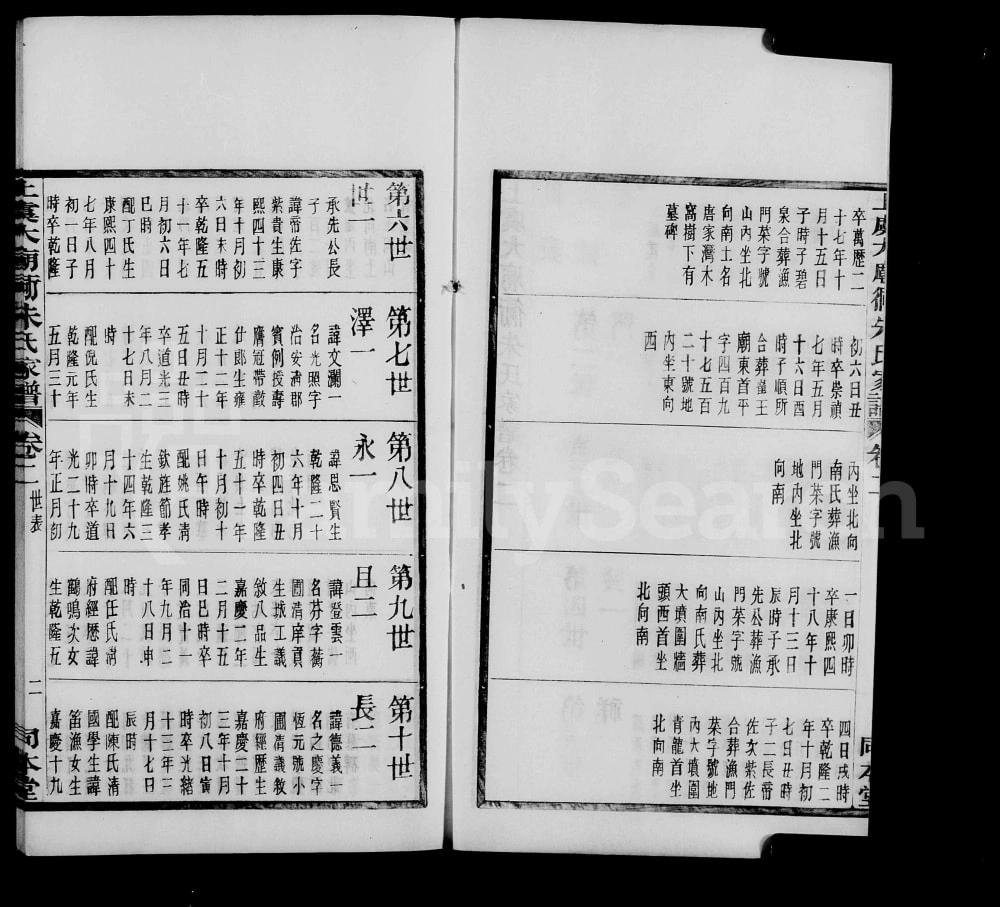 卒萬歷二
十七年十
月十五日
子時子碧
泉合葬漁
門菜字號
山內坐北
向南土名
唐家灣木
窩樹下有
墓碑
初六日丑
時卒崇禎
七年五月
十六日酉
時子順所
合葬崔王
廟東首平
字四百九
十七五百
二十號地
內坐東向
西
丙坐北向
南氏葬漁
門菜字號
地內坐北
向南
一日卯時
卒康熙四
十八年十
月十三日
辰時子承
先公葬漁
門菜字號
山內坐北
向南氏葬
大墳圍牆
頭西首坐
北向南
四日戌時
卒乾隆二
年十月初
七日丑時
子二長帝
佐次紫佐
合葬漁門
菜字號地
內大墳圍
青龍首坐
北向南
第六世
世一
承先公長
子
諱帝佐字
紫貴生康
熙四十三
年十月初
六日未時
卒乾隆五
十一年七
月初六日
巳時
配丁氏生
康熙四十
七年八月
初一日子
時卒乾隆
第七世
澤一
諱文瀾一
名光照字
治安清郡
賓例授壽
膺冠帶徵
仕郎生雍
正十二年
十月二十
五日丑時
卒道光三
年八月二
十七日未
時
配倪氏生
乾隆元年
五月三十
第八世
永一
諱思賢生
乾隆二十
六年十月
初四日丑
時卒乾隆
五十一年
十正月初十
日午時
配姚氏清
欽旌節孝
生乾隆三
十四年六
月十九日
卯時卒道
光二十九
年正月初
第九世
且一
諱登雲一
名芬字蒭
圃清庠貢
生城工議
敘八品生
嘉慶二年
二月十五
日巳時卒
同治十一
年九月二
十八日申
時
配任氏清
府經歷諱
鶴鳴次女
生乾隆五
第十世
長一
諱德義一
名之慶字
恆元號小
圃清議敘
府經歷生
嘉慶二十
三年十月
初八日寅
時卒光緒
十三年二
月十七日
辰時
配陳氏清
國學生諱
笛漁女生
嘉慶十九
上虞大廟衖朱氏家譜 卷二 世表 二 同本堂
FamilySearch